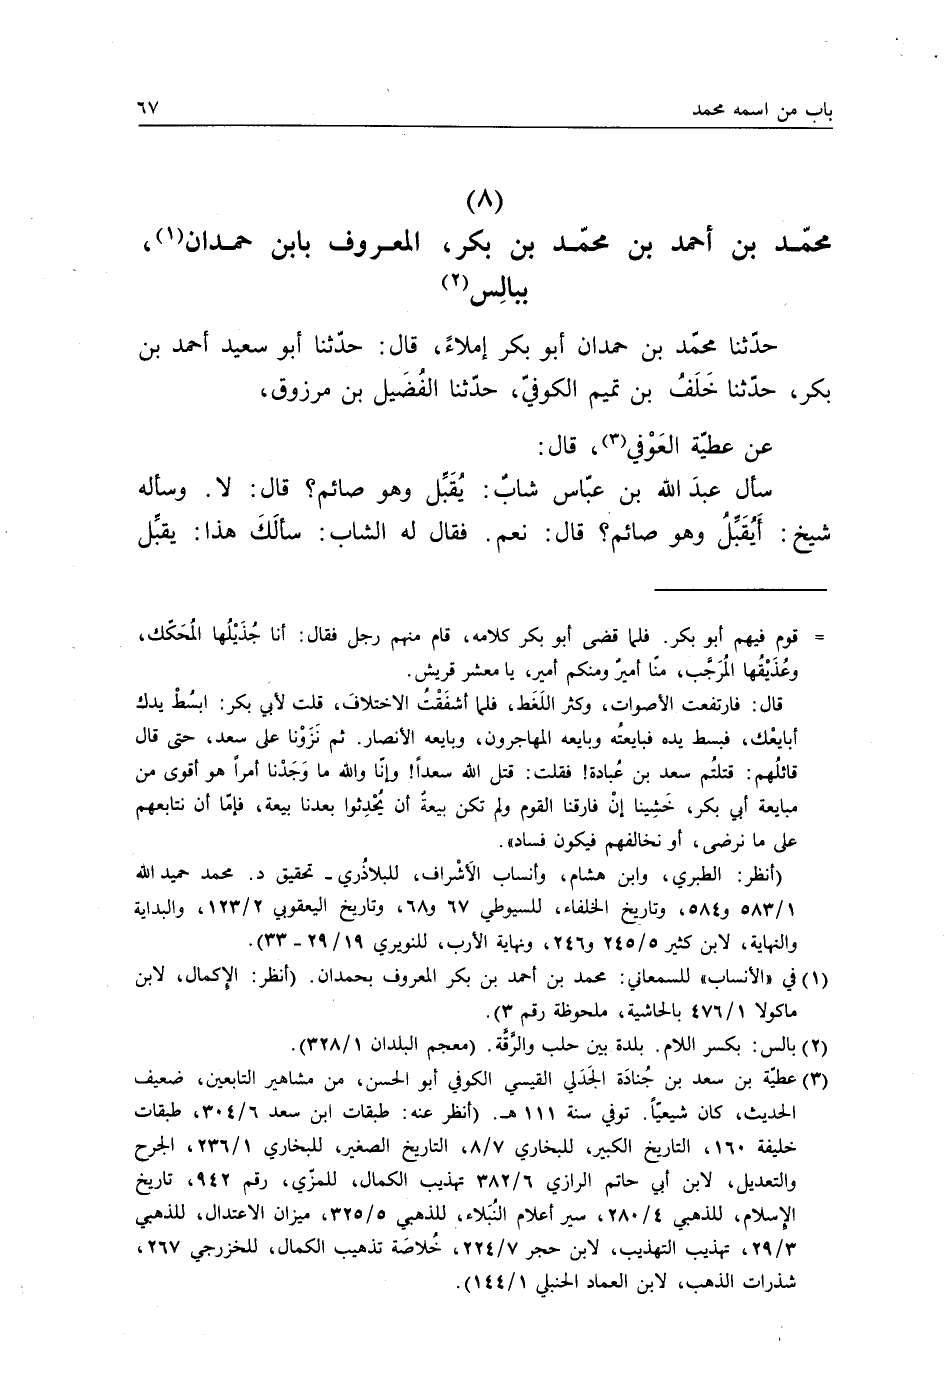 باب من اسمه محمد ٦٧
(٨)
محمّـد بن أحمد بن محمّـد بن بكر، المعـروف بابن حمـدان(١)،
ببالِس(٢)
حدّثنا محمّد بن حمدان أبو بكر إملاءً، قال: حدّثنا أبو سعيد أحمد بن
بكر، حدّثنا خَلَفُ بن تميم الكوفيّ، حدّثنا الفُضَيل بن مرزوق،
عن عطيّة العَوْفي(٣)، قال:
سأل عبدَ الله بن عبّاس شابٌ: يُقَبِّل وهو صائم؟ قال: لا. وسأله
شيخ: أَيُقَبِّلُ وهو صائم؟ قال: نعم. فقال له الشاب: سألَكَ هذا: يقبِّل
= قوم فيهم أبو بكر. فلما قضى أبو بكر كلامه، قام منهم رجل فقال: أنا جُذَيْلُها المُحَكّك،
وعُذَيْقُها المُرَجَّب، منّا أميرٌ ومنكم أمير، يا معشر قريش.
قال: فارتفعت الأصوات، وكثر اللَغَط، فلما أشفَقْتُ الاختلافَ، قلت لأبي بكر: ابسُطْ يدك
أبايعْك، فبسط يده فبايعتُه وبايعه المهاجرون، وبايعه الأنصار. ثم نَزَوْنا على سعد، حتى قال
قائلُهم: قتلتُم سعد بن عُبادة! فقلت: قتل الله سعداً! وإنّا والله ما وَجَدْنا أمراً هو أقوى من
مبايعة أبي بكر، خَشِينا إنْ فارقنا القوم ولم تكن بيعةٌ أن يُحْدِثوا بعدنا بيعة، فإمّا أن نتابعهم
على ما نرضى، أو نخالفهم فيكون فساد».
(أنظر: الطبري، وابن هشام، وأنساب الأشْراف، للبلاذُري ـ تحقيق د. محمد حميد الله
٥٨٣/١ و٥٨٤، وتاريخ الخلفاء، للسيوطي ٦٧ و٦٨، وتاريخ اليعقوبي ١٢٣/٢، والبداية
والنهاية، لابن كثير ٢٤٥/٥ و٢٤٦، ونهاية الأرب، للنويري ٢٩/١٩ ـ ٣٣).
(١) في «الأنساب» للسمعاني: محمد بن أحمد بن بكر المعروف بحمدان. (أنظر: الإكمال، لابن
ماكولا ٤٧٦/١ بالحاشية، ملحوظة رقم ٣).
(٢) بالس: بكسر اللام. بلدة بين حلب والرَّقَّة. (معجم البلدان ٣٢٨/١).
(٣) عطيّة بن سعد بن جُنادَة الجَدَلي القيسي الكوفي أبو الحسن، من مشاهير التابعين، ضعيف
الحديث، كان شيعيّاً. توفي سنة ١١١ هـ. (أنظر عنه: طبقات ابن سعد ٣٠٤/٦، طبقات
خليفة ١٦٠، التاريخ الكبير، للبخاري ٨/٧، التاريخ الصغير، للبخاري ٢٣٦/١، الجرح
والتعديل، لابن أبي حاتم الرازي ٣٨٢/٦ تهذيب الكمال، للمزّي، رقم ٩٤٢، تاريخ
الإسلام، للذهبي ٢٨٠/٤، سير أعلام النُبَلاء، للذهبي ٣٢٥/٥، ميزان الاعتدال، للذهبي
٢٩/٣، تهذيب التهذيب، لابن حجر ٢٢٤/٧، خُلاصَة تذهيب الكمال، للخزرجي ٢٦٧،
شذرات الذهب، لابن العماد الحنبلي ١٤٤/١).